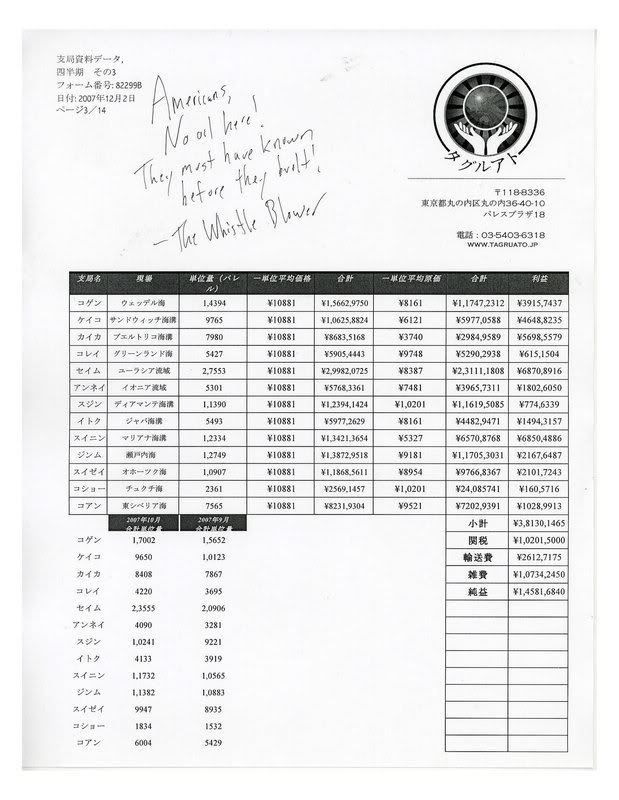 支局資料データ,
四半期　その3
フォーム番号: 82299B
日付: 2007年12月2日
ページ3／14
Americans,
No oil here!
They must have known
before they built!
—The Whistle Blower
タグルアト
〒118-8336
東京都丸の内区丸の内36-40-10
パレスプラザ18
電話：03-5403-6318
WWW.TAGRUATO.JP
支局名 現場 単位量（バレル） 一単位平均価格 合計 一単位平均原価 合計 利益
コゲン ウェッデル海 1,4394 ¥10881 ¥1,5662,9750 ¥8161 ¥1,1747,2312 ¥3915,7437
ケイコ サンドウィッチ海溝 9765 ¥10881 ¥1,0625,8824 ¥6121 ¥5977,0588 ¥4648,8235
カイカ プエルトリコ海溝 7980 ¥10881 ¥8683,5168 ¥3740 ¥2984,9589 ¥5698,5579
コレイ グリーンランド海 5427 ¥10881 ¥5905,4443 ¥9748 ¥5290,2938 ¥615,1504
セイム ユーラシア流域 2,7553 ¥10881 ¥2,9982,0725 ¥8387 ¥2,3111,1808 ¥6870,8916
アンネイ イオニア流域 5301 ¥10881 ¥5768,3361 ¥7481 ¥3965,7311 ¥1802,6050
スジン ディアマンテ海溝 1,1390 ¥10881 ¥1,2394,1424 ¥1,0201 ¥1,1619,5085 ¥774,6339
イトク ジャバ海溝 5493 ¥10881 ¥5977,2629 ¥8161 ¥4482,9471 ¥1494,3157
スイニン マリアナ海溝 1,2334 ¥10881 ¥1,3421,3654 ¥5327 ¥6570,8768 ¥6850,4886
ジンム 瀬戸内海 1,2749 ¥10881 ¥1,3872,9518 ¥9181 ¥1,1705,3031 ¥2167,6487
スイゼイ オホーツク海 1,0907 ¥10881 ¥1,1868,5611 ¥8954 ¥9766,8367 ¥2101,7243
コショー チュクチ海 2361 ¥10881 ¥2569,1457 ¥1,0201 ¥24,085741 ¥160,5716
コアン 東シベリア海 7565 ¥10881 ¥8231,9304 ¥9521 ¥7202,9391 ¥1028,9913
2007年10月 合計単位量 2007年9月 合計単位量 小計 ¥3,8130,1465
コゲン 1,7002 1,5652 関税 ¥1,0201,5000
ケイコ 9650 1,0123 輸送費 ¥2612,7175
カイカ 8408 7867 雑費 ¥1,0734,2450
コレイ 4220 3695 純益 ¥1,4581,6840
セイム 2,3555 2,0906
アンネイ 4090 3281
スジン 1,0241 9221
イトク 4133 3919
スイニン 1,1732 1,0565
ジンム 1,1382 1,0883
スイゼイ 9947 8935
コショー 1834 1532
コアン 6004 5429